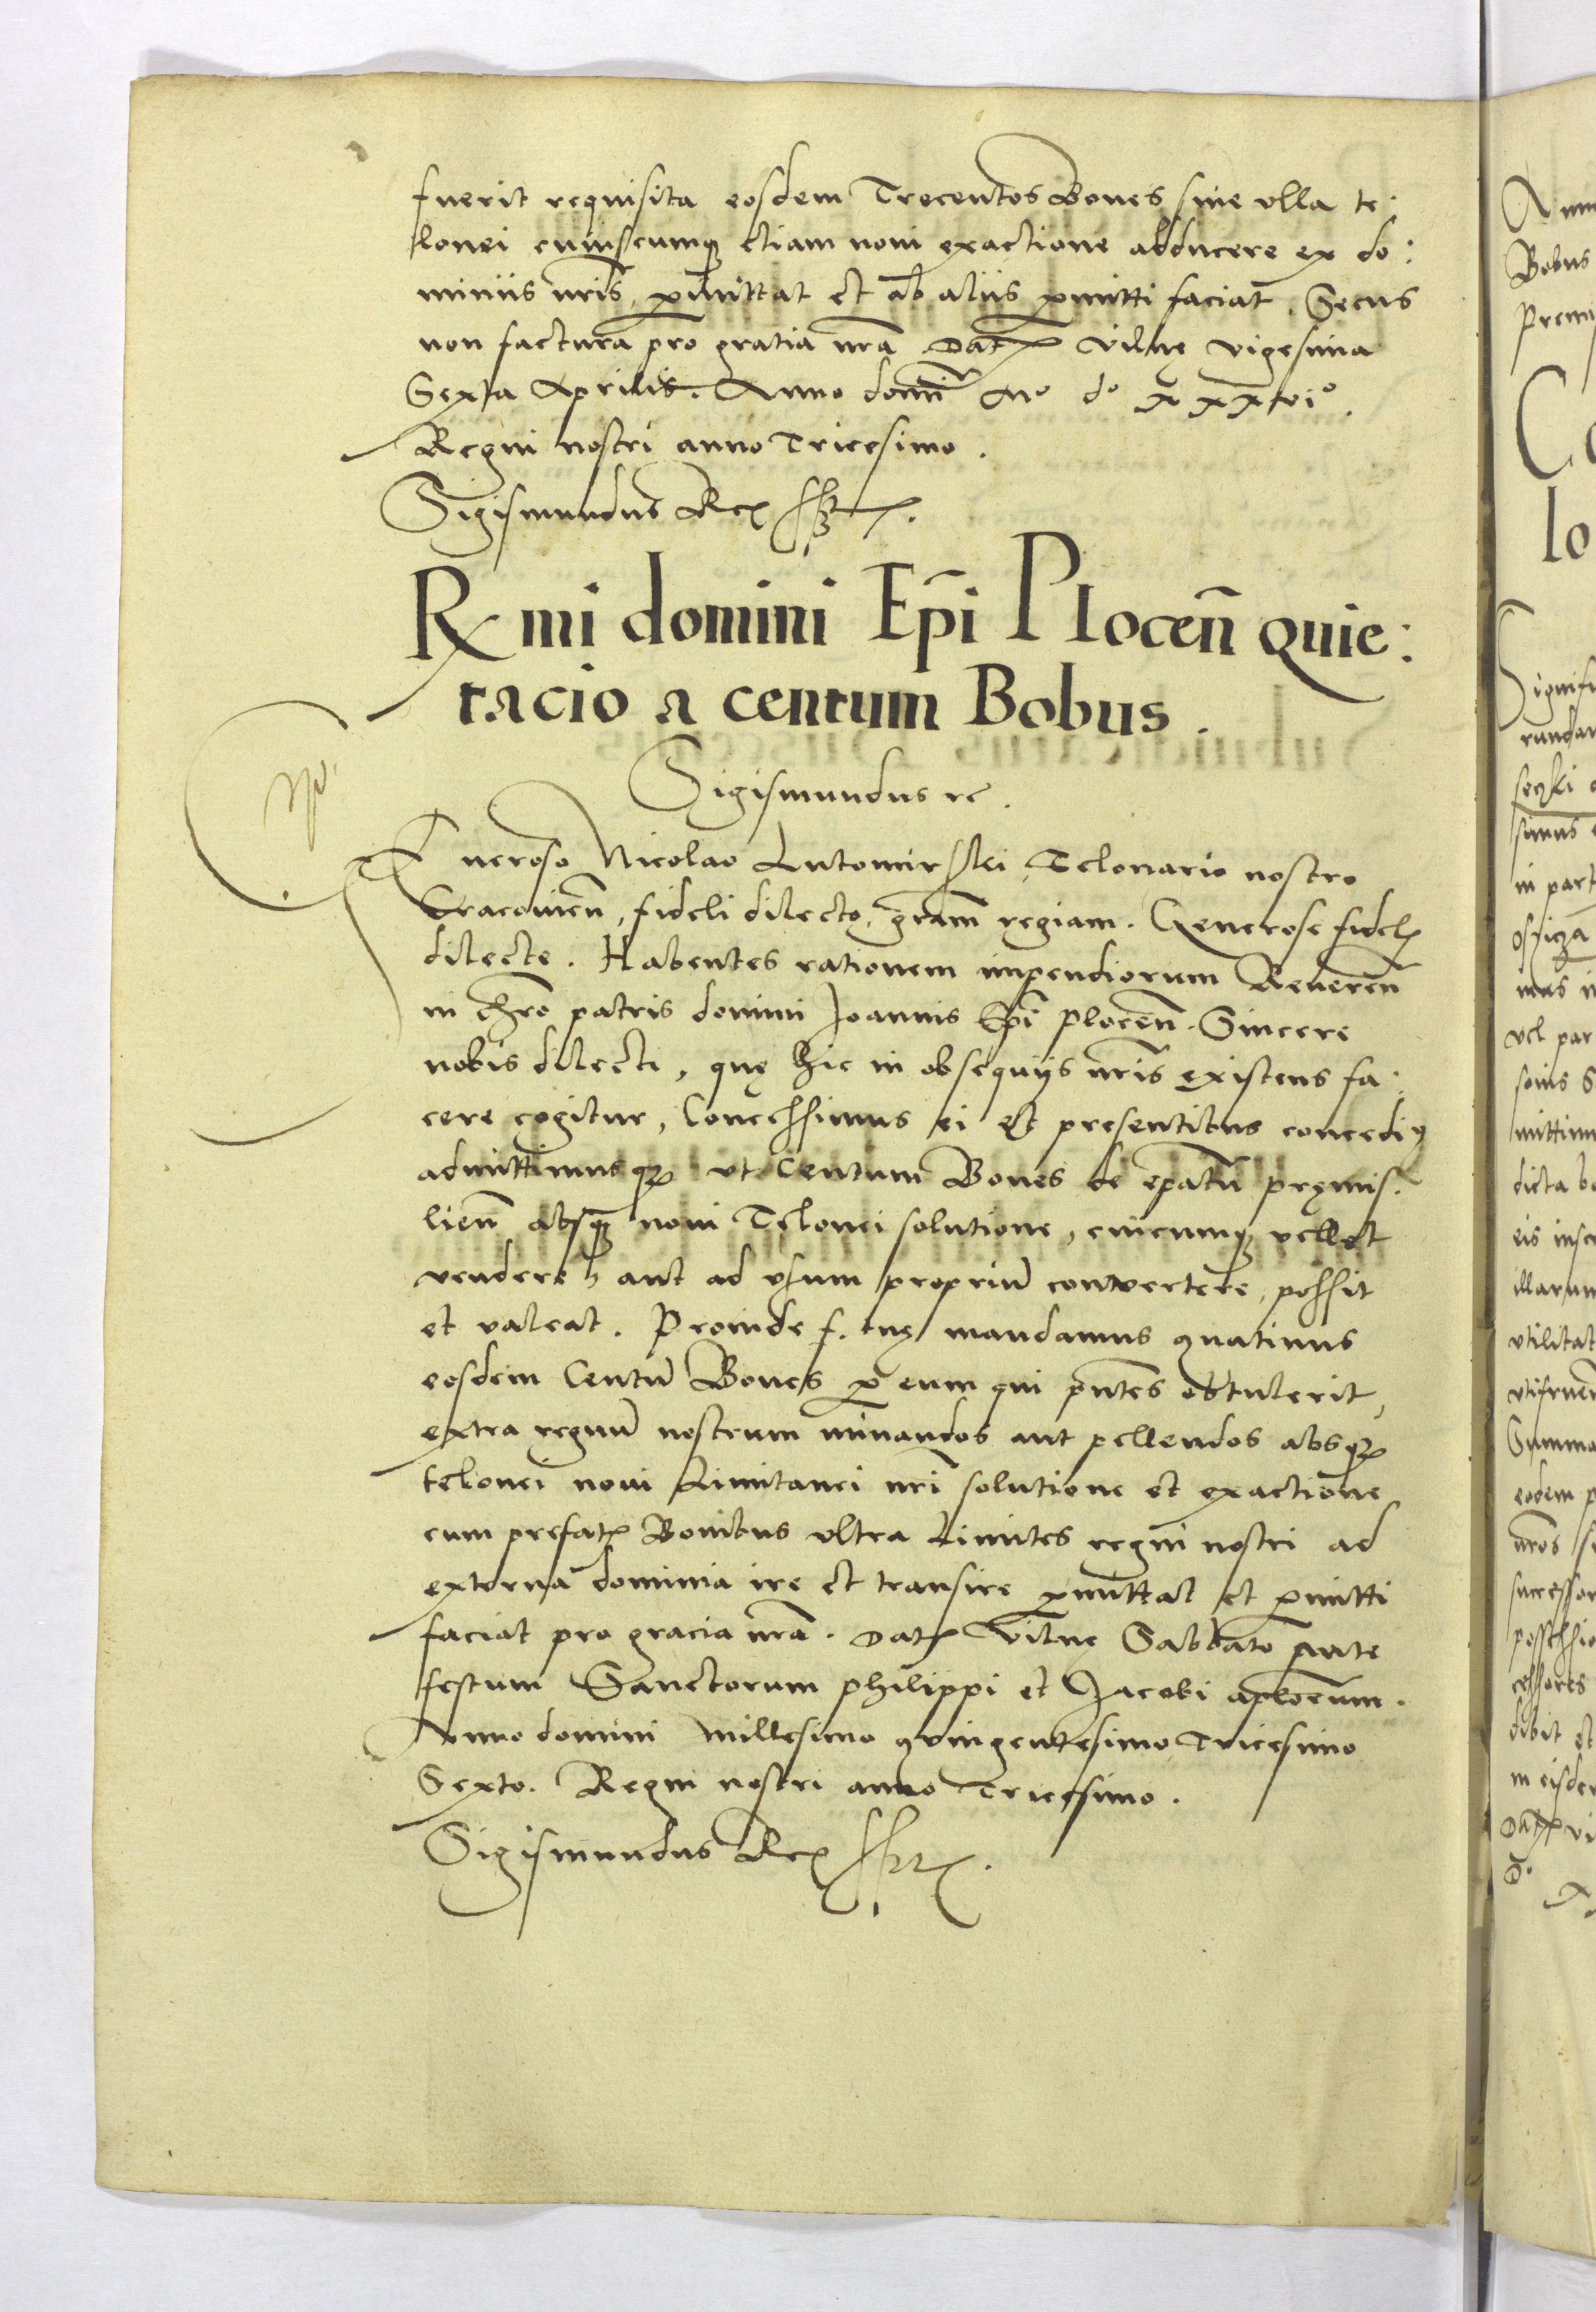 fuerit requisita eosdem Trecentos Boues sine vlla te:
lonei cuiuscumq3 etiam noui exactione abducere ex do:
miniis nris, pmittat et ab aliis pmitti faciat. Secus
non factura pro gratia nra Dat Vilne vigesima
Sexta Aprilis. Anno domi Mo do xxxvio.
Regni nostri anno Tricesimo.
Sigismundus Rex sst.
Rx mi domini Epi Plocen quie:
tacio a centum Bobus.
Sigismundus rc.
Generoso Nicolao Lutomirski, Telonario nostro
Cracouien, fideli dilecto, gram regiam. Generose fidelis
dilecte. Habentes rationem impendiorum Reueren
in chro patris domini Joannis Epi plocen. Sincere
nobis dilecti, quę hic in obsequijs nris existens fa:
cere cogitur, Concessimus ei et presentibus concedim9
admittimusq3 vt Centum Boues de epatu pręmis:
lien absq3 noui Telonei solutione, cuicumq3 vellet
vendere, aut ad vsum propriu conuertere, possit
et valeat. Proinde f. tuę mandamus quatinus
eosdem Centu Boues p eum qui pntes obtulerit,
extra regnu nostrum minandos aut pellendos absq3
telonei noui Limitanei nri solutione et exactione
cum prefatis Bouibus vltra Limites regni nostri ad
externa dominia ire et transire pmittat et pmitti
faciat pro gracia nra. Dat Vilnę Sabbato ante
festum Sanctorum Philippi et Jacobi aplorum.
Anno domini Millesimo quingentesimo Tricesimo
Sexto. Regni nostri anno Tricesimo.
Sigismundus Rex sst.